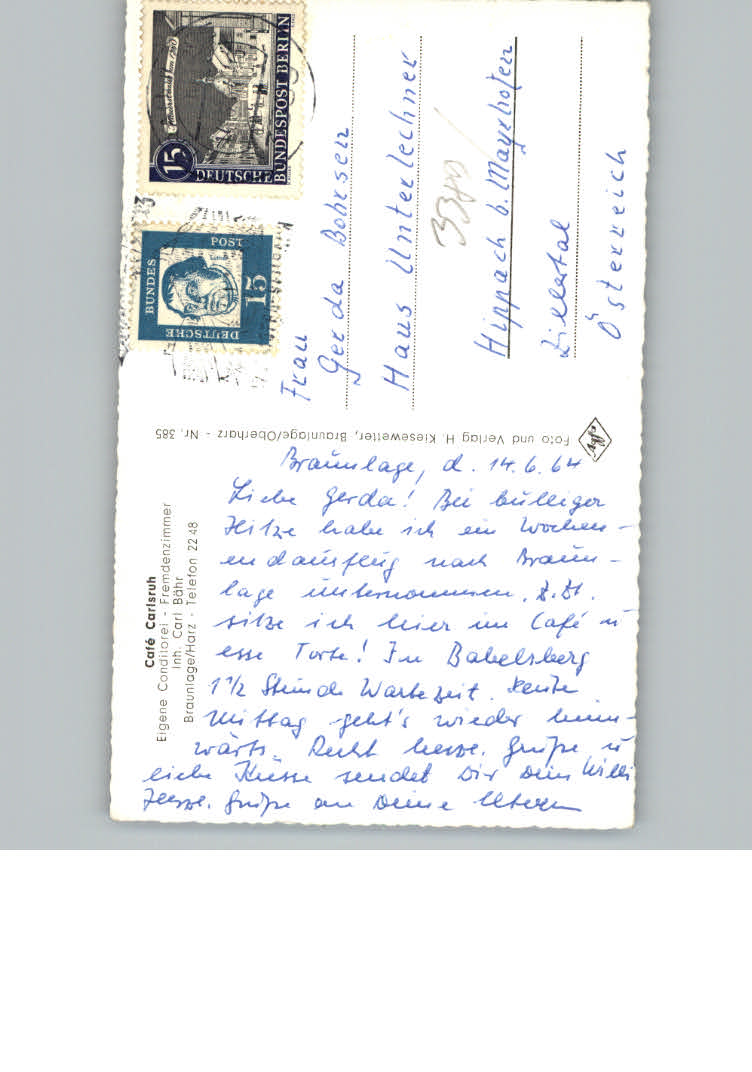 Braunlage, d. 14.6.64
Liebe Gerda! Bei bulliger
Hitze habe ich ein Wochen-
endausflug nach Braun-
lage unternommen. Z.Zt.
sitze ich hier im Café u
esse Torte! In Babelsberg
1 1/2 Stunde Wartezeit. Heute
Mittag geht's wieder heim-
wärts. Recht herzl. Grüße u
liebe Küsse sendet Dir Dein Willi
Herzl. Grüße an Deine Eltern
Frau
Gerda Bohrsen
Haus Unterlechner
Hippach b. Mayrhofen
Zillertal
Österreich
Café Carlsruh
Eigene Conditorei - Fremdenzimmer
Inh. Carl Bähr
Braunlage/Harz - Telefon 22 48
Foto und Verlag H. Kiesewetter, Braunlage/Oberharz - Nr. 385
Agfa
15
DEUTSCHE BUNDESPOST BERLIN
DEUTSCHE BUNDES POST
15